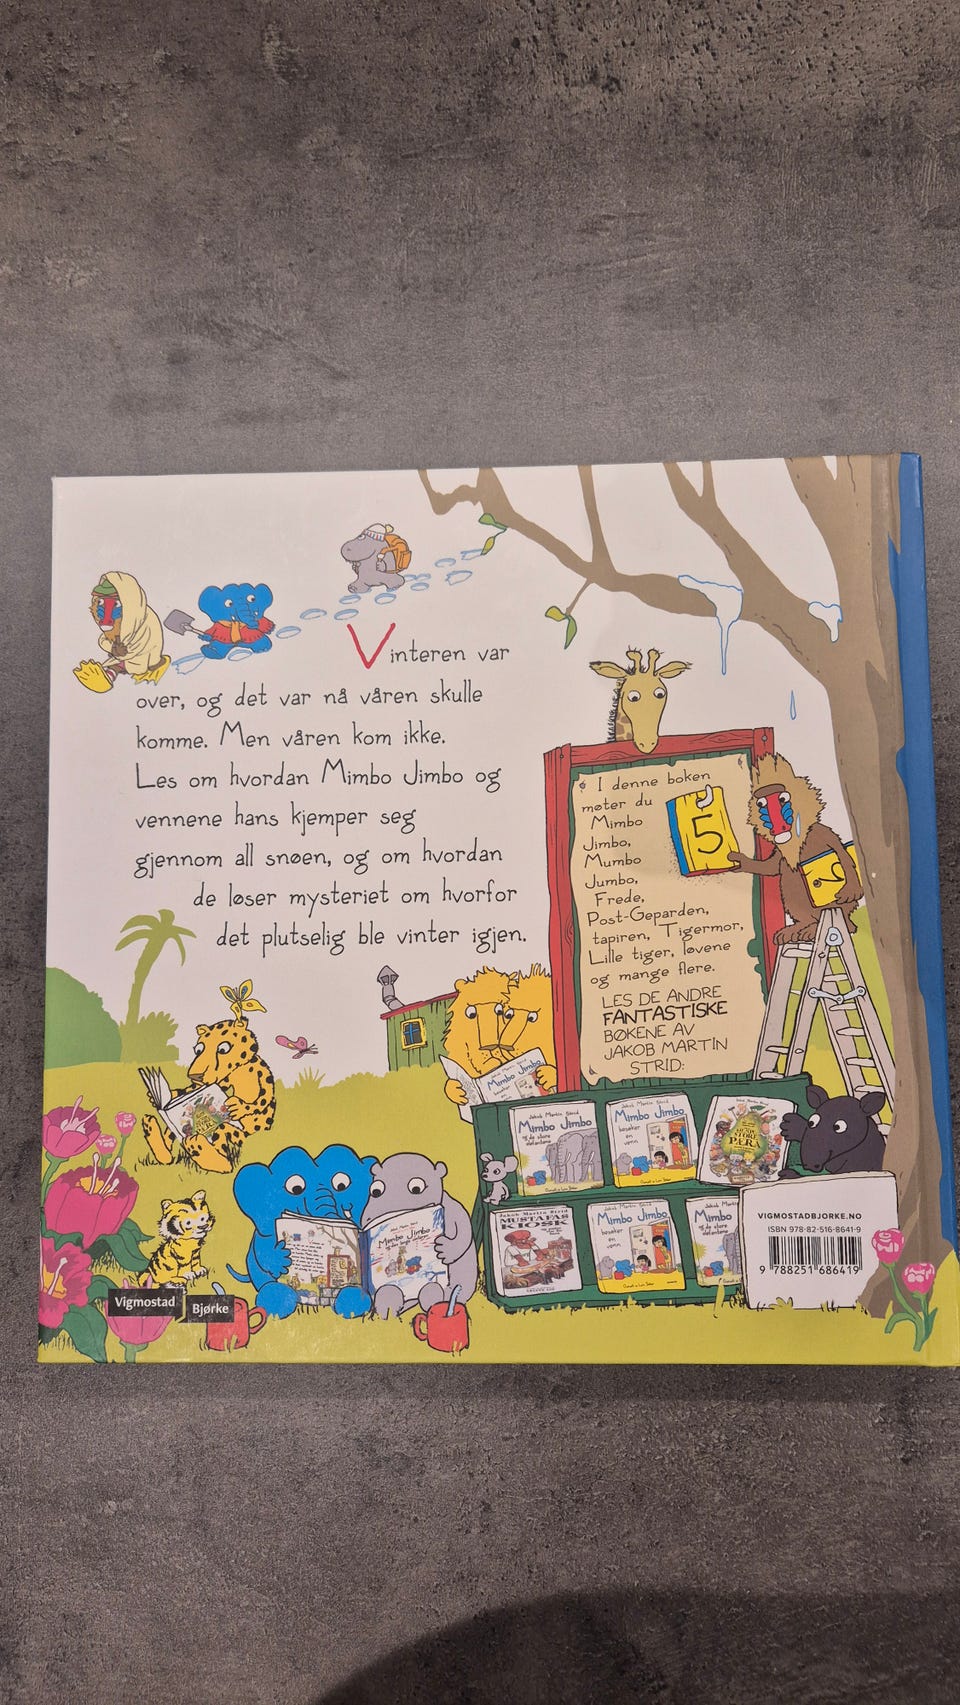 Vinteren var
over, og det var nå våren skulle
komme. Men våren kom ikke.
Les om hvordan Mimbo Jimbo og
vennene hans kjemper seg
gjennom all snøen, og om hvordan
de løser mysteriet om hvorfor
det plutselig ble vinter igjen.
I denne boken
møter du
Mimbo
Jimbo,
Mumbo
Jumbo,
Frede,
Post-Geparden,
tapiren, Tigermor,
Lille tiger, løvene
og mange flere.
LES DE ANDRE
FANTASTISKE
BØKENE AV
JAKOB MARTIN
STRID:
5
Mimbo Jimbo
besøker
en
Jakob Martin Strid
Mimbo Jimbo
og de store
elefantene
Mimbo Jimbo
besøker
en
venn
PÆRA
Jakob Martin Strid
MUSTAFAS
KIOSK
Mimbo Jimbo
besøker
en
venn
Mimbo
og de store
elefantene
Mimbo Jimbo
VIGMOSTADBJORKE.NO
ISBN 978-82-516-8641-9
9 788251 686419
Vigmostad
Bjørke